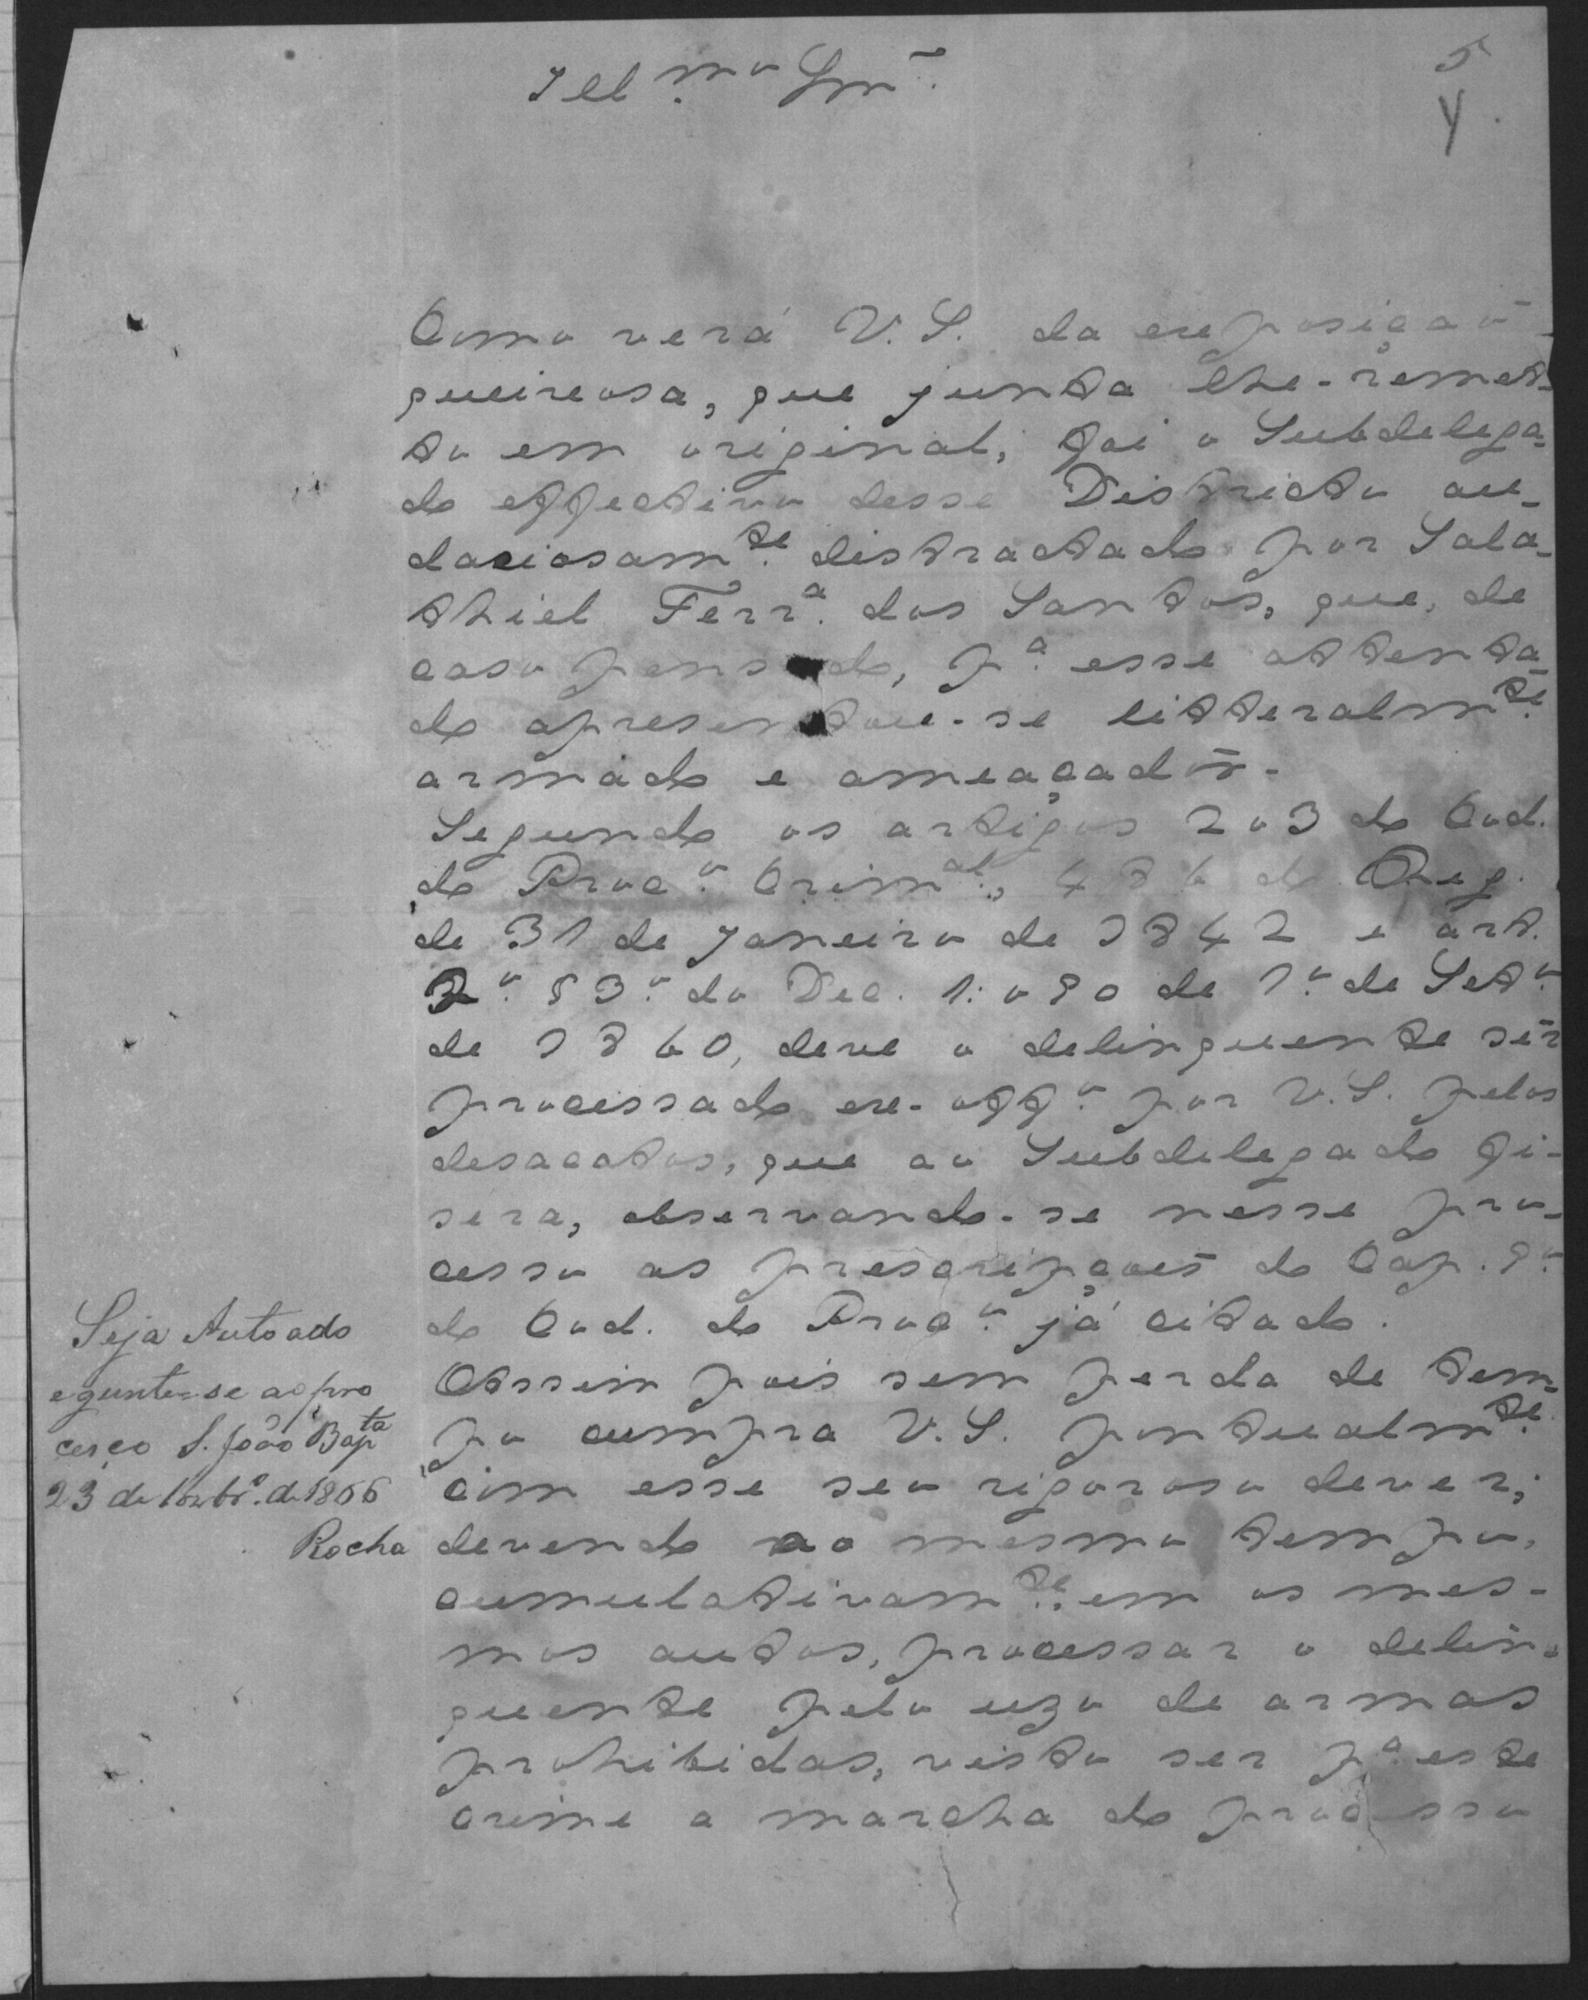 5
4
Ill.mo Snr.
Como verá V.S. da exposição
queixosa, que junta lhe-remet-
to em original, foi o Subdelega-
do effectivo desse Districto au-
daciosam.te distractado por Sala-
thiel Ferr.a dos Santos, que, de
caso pensado, p.a esse attenta-
do apresentou-se litteralm.te
armado e ameaçadôr.
Segundo os artigos 203 do Cod.
do Proc.o Crim.al, 486 do Reg.
de 31 de Janeiro de 1842 e art.
2.o § 3.o do Dec. 1:090 de 1.o de Set.o
de 1860, deve o delinquente sêr
processado ex-off.o por V.S. pelos
desacatos, que ao Subdelegado fi-
sera, observando-se nesse pro-
cesso as prescripçoes do Cap. 9.o
do Cod. do Proc.o já citado.
Assim pois sem perda de tem-
po cumpra V.S. pontualm.te
com esse seu rigoroso dever;
devendo ao mesmo tempo,
cumulativam.te, em os mes-
mos autos, processar o delin-
quente pelo uzo de armas
prohibidas, visto ser p.a este
crime a marcha do processo
Seja Autoado
e gunte-se ao pro
cesço S. João Bap.ta
23 de 8xbr.o de 1866
Rocha